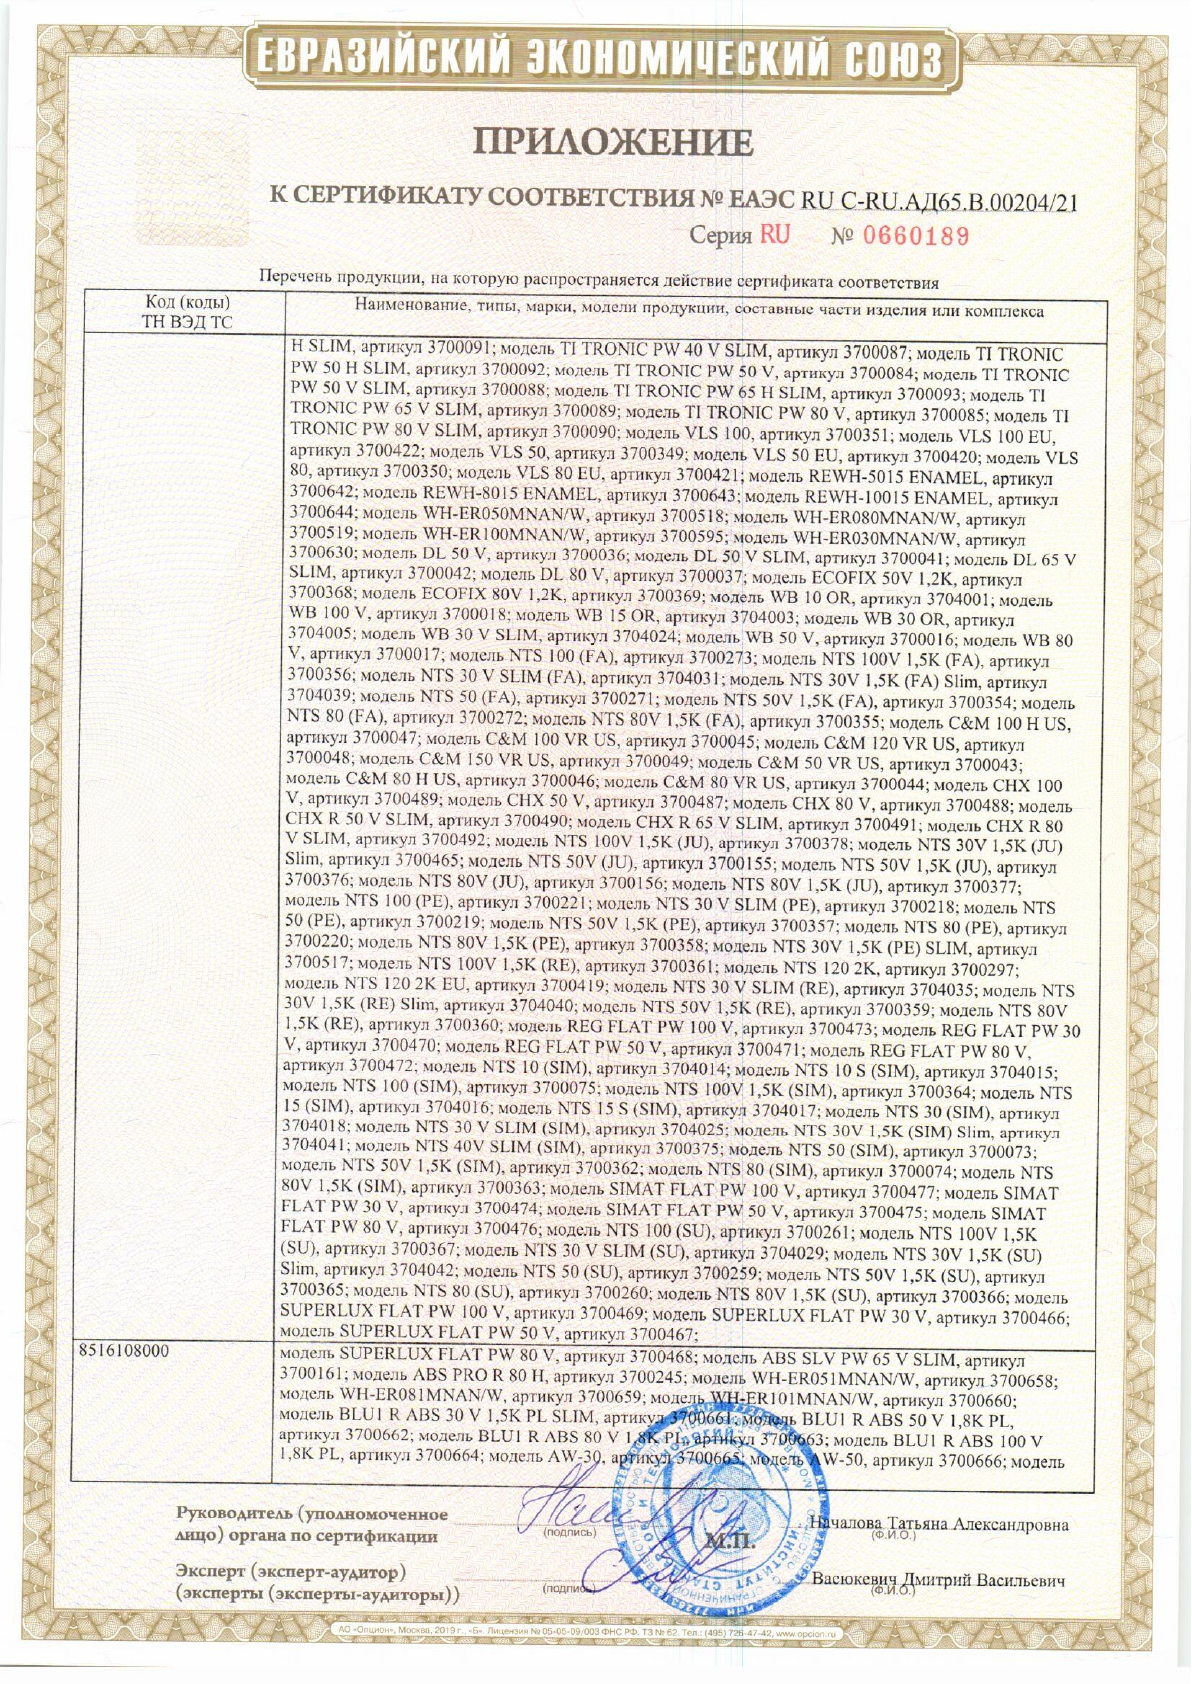 ЕВРАЗИЙСКИЙ ЭКОНОМИЧЕСКИЙ СОЮЗ
ПРИЛОЖЕНИЕ
К СЕРТИФИКАТУ СООТВЕТСТВИЯ № ЕАЭС RU C-RU.АД65.В.00204/21
Серия RU № 0660189
Перечень продукции, на которую распространяется действие сертификата соответствия
Код (коды)
ТН ВЭД ТС
Наименование, типы, марки, модели продукции, составные части изделия или комплекса
H SLIM, артикул 3700091; модель TI TRONIC PW 40 V SLIM, артикул 3700087; модель TI TRONIC
PW 50 H SLIM, артикул 3700092; модель TI TRONIC PW 50 V, артикул 3700084; модель TI TRONIC
PW 50 V SLIM, артикул 3700088; модель TI TRONIC PW 65 H SLIM, артикул 3700093; модель TI
TRONIC PW 65 V SLIM, артикул 3700089; модель TI TRONIC PW 80 V, артикул 3700085; модель TI
TRONIC PW 80 V SLIM, артикул 3700090; модель VLS 100, артикул 3700351; модель VLS 100 EU,
артикул 3700422; модель VLS 50, артикул 3700349; модель VLS 50 EU, артикул 3700420; модель VLS
80, артикул 3700350; модель VLS 80 EU, артикул 3700421; модель REWH-5015 ENAMEL, артикул
3700642; модель REWH-8015 ENAMEL, артикул 3700643; модель REWH-10015 ENAMEL, артикул
3700644; модель WH-ER050MNAN/W, артикул 3700518; модель WH-ER080MNAN/W, артикул
3700519; модель WH-ER100MNAN/W, артикул 3700595; модель WH-ER030MNAN/W, артикул
3700630; модель DL 50 V, артикул 3700036; модель DL 50 V SLIM, артикул 3700041; модель DL 65 V
SLIM, артикул 3700042; модель DL 80 V, артикул 3700037; модель ECOFIX 50V 1,2K, артикул
3700368; модель ECOFIX 80V 1,2K, артикул 3700369; модель WB 10 OR, артикул 3704001; модель
WB 100 V, артикул 3700018; модель WB 15 OR, артикул 3704003; модель WB 30 OR, артикул
3704005; модель WB 30 V SLIM, артикул 3704024; модель WB 50 V, артикул 3700016; модель WB 80
V, артикул 3700017; модель NTS 100 (FA), артикул 3700273; модель NTS 100V 1,5K (FA), артикул
3700356; модель NTS 30 V SLIM (FA), артикул 3704031; модель NTS 30V 1,5K (FA) Slim, артикул
3704039; модель NTS 50 (FA), артикул 3700271; модель NTS 50V 1,5K (FA), артикул 3700354; модель
NTS 80 (FA), артикул 3700272; модель NTS 80V 1,5K (FA), артикул 3700355; модель C&M 100 H US,
артикул 3700047; модель C&M 100 VR US, артикул 3700045; модель C&M 120 VR US, артикул
3700048; модель C&M 150 VR US, артикул 3700049; модель C&M 50 VR US, артикул 3700043;
модель C&M 80 H US, артикул 3700046; модель C&M 80 VR US, артикул 3700044; модель CHX 100
V, артикул 3700489; модель CHX 50 V, артикул 3700487; модель CHX 80 V, артикул 3700488; модель
CHX R 50 V SLIM, артикул 3700490; модель CHX R 65 V SLIM, артикул 3700491; модель CHX R 80
V SLIM, артикул 3700492; модель NTS 100V 1,5K (JU), артикул 3700378; модель NTS 30V 1,5K (JU)
Slim, артикул 3700465; модель NTS 50V (JU), артикул 3700155; модель NTS 50V 1,5K (JU), артикул
3700376; модель NTS 80V (JU), артикул 3700156; модель NTS 80V 1,5K (JU), артикул 3700377;
модель NTS 100 (PE), артикул 3700221; модель NTS 30 V SLIM (PE), артикул 3700218; модель NTS
50 (PE), артикул 3700219; модель NTS 50V 1,5K (PE), артикул 3700357; модель NTS 80 (PE), артикул
3700220; модель NTS 80V 1,5K (PE), артикул 3700358; модель NTS 30V 1,5K (PE) SLIM, артикул
3700517; модель NTS 100V 1,5K (RE), артикул 3700361; модель NTS 120 2K, артикул 3700297;
модель NTS 120 2K EU, артикул 3700419; модель NTS 30 V SLIM (RE), артикул 3704035; модель NTS
30V 1,5K (RE) Slim, артикул 3704040; модель NTS 50V 1,5K (RE), артикул 3700359; модель NTS 80V
1,5K (RE), артикул 3700360; модель REG FLAT PW 100 V, артикул 3700473; модель REG FLAT PW 30
V, артикул 3700470; модель REG FLAT PW 50 V, артикул 3700471; модель REG FLAT PW 80 V,
артикул 3700472; модель NTS 10 (SIM), артикул 3704014; модель NTS 10 S (SIM), артикул 3704015;
модель NTS 100 (SIM), артикул 3700075; модель NTS 100V 1,5K (SIM), артикул 3700364; модель NTS
15 (SIM), артикул 3704016; модель NTS 15 S (SIM), артикул 3704017; модель NTS 30 (SIM), артикул
3704018; модель NTS 30 V SLIM (SIM), артикул 3704025; модель NTS 30V 1,5K (SIM) Slim, артикул
3704041; модель NTS 40V SLIM (SIM), артикул 3700375; модель NTS 50 (SIM), артикул 3700073;
модель NTS 50V 1,5K (SIM), артикул 3700362; модель NTS 80 (SIM), артикул 3700074; модель NTS
80V 1,5K (SIM), артикул 3700363; модель SIMAT FLAT PW 100 V, артикул 3700477; модель SIMAT
FLAT PW 30 V, артикул 3700474; модель SIMAT FLAT PW 50 V, артикул 3700475; модель SIMAT
FLAT PW 80 V, артикул 3700476; модель NTS 100 (SU), артикул 3700261; модель NTS 100V 1,5K
(SU), артикул 3700367; модель NTS 30 V SLIM (SU), артикул 3704029; модель NTS 30V 1,5K (SU)
Slim, артикул 3704042; модель NTS 50 (SU), артикул 3700259; модель NTS 50V 1,5K (SU), артикул
3700365; модель NTS 80 (SU), артикул 3700260; модель NTS 80V 1,5K (SU), артикул 3700366; модель
SUPERLUX FLAT PW 100 V, артикул 3700469; модель SUPERLUX FLAT PW 30 V, артикул 3700466;
модель SUPERLUX FLAT PW 50 V, артикул 3700467;
8516108000
модель SUPERLUX FLAT PW 80 V, артикул 3700468; модель ABS SLV PW 65 V SLIM, артикул
3700161; модель ABS PRO R 80 H, артикул 3700245; модель WH-ER051MNAN/W, артикул 3700658;
модель WH-ER081MNAN/W, артикул 3700659; модель WH-ER101MNAN/W, артикул 3700660;
модель BLU1 R ABS 30 V 1,5K PL SLIM, артикул 3700661; модель BLU1 R ABS 50 V 1,8K PL,
артикул 3700662; модель BLU1 R ABS 80 V 1,8K PL, артикул 3700663; модель BLU1 R ABS 100 V
1,8K PL, артикул 3700664; модель AW-30, артикул 3700665; модель AW-50, артикул 3700666; модель
Руководитель (уполномоченное
лицо) органа по сертификации
(подпись)
М.П.
Началова Татьяна Александровна
(Ф.И.О.)
Эксперт (эксперт-аудитор)
(эксперты (эксперты-аудиторы))
(подпись)
Васюкевич Дмитрий Васильевич
(Ф.И.О.)
АО «Опцион», Москва, 2019 г., «Б». Лицензия № 05-05-09/003 ФНС РФ. ТЗ № 62. Тел.: (495) 726-47-42, www.opcion.ru